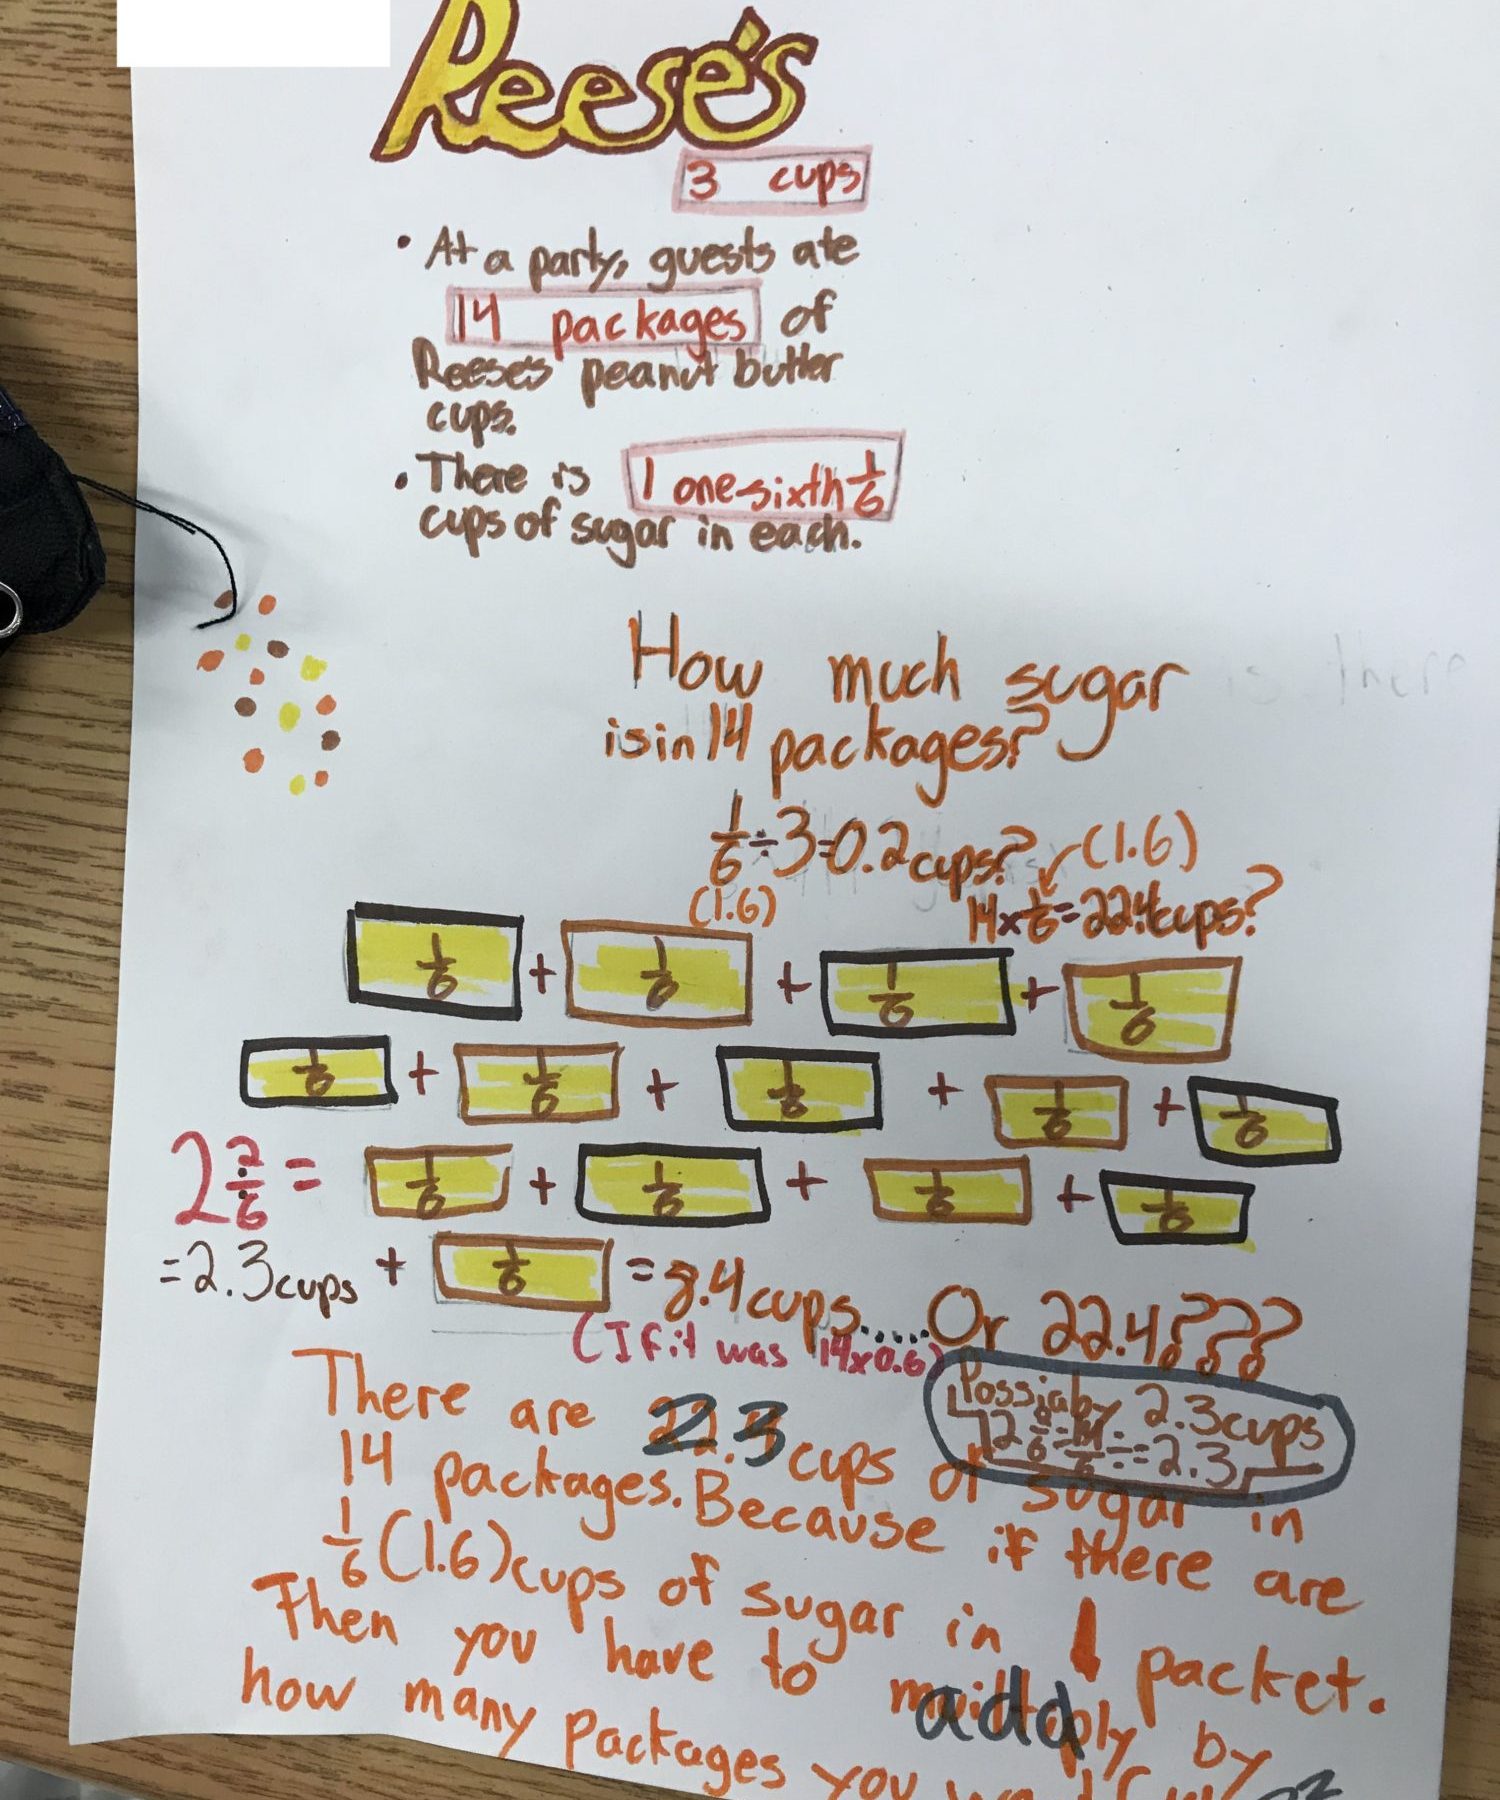 Reese's
3 cups
• At a party, guests ate
14 packages of
Reese's peanut butter
cups.
• There is 1 one-sixth 1/6
cups of sugar in each.
How much sugar
is there
is in 14 packages?
1/6 ÷ 3 = 0.2 cups? (1.6)
(1.6) 14 x 1/6 = 22.4 cups?
1/6 + 1/6 + 1/6 + 1/6
1/6 + 1/6 + 1/6 + 1/6 + 1/6
2 2/6 = 1/6 + 1/6 + 1/6 + 1/6
= 2.3 cups + 1/6 = 8.4 cups..... Or 22.4???
(If it was 14x0.6)
Possiably 2.3 cups
2 2/6 = 14/6 ÷ = 2.3
There are 2.3 cups of sugar in
14 packages. Because if there are
1/6 (1.6) cups of sugar in 1 packet.
Then you have to add by
how many packages you